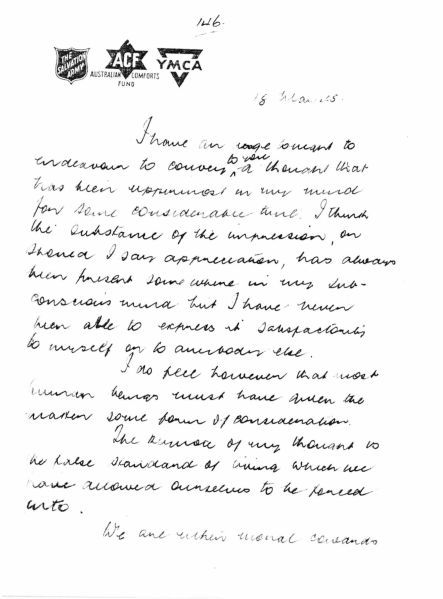 146.
THE SALVATION ARMY
ACF
YMCA
AUSTRALIAN COMFORTS FUND
18 Mar. 45.
I have an urge tonight to
endeavour to convey to you a thought that
has been uppermost in my mind
for some considerable time. I think
the substance of the impression, or
should I say appreciation, has always
been present somewhere in my sub-
conscious mind but I have never
been able to express it satisfactorily
to myself or to anybody else.
I do feel however that most
human beings must have given the
matter some form of consideration.
The of my thought is
the false standard of living which we
have allowed ourselves to be forced
into.
We are either moral cowards